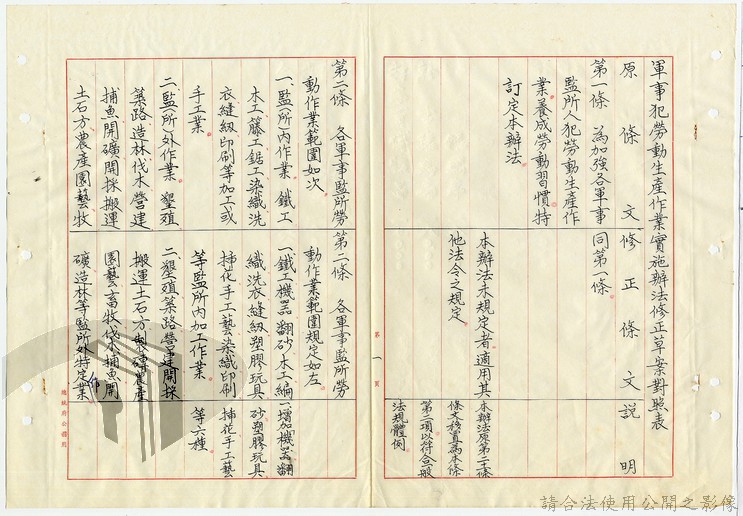 軍事犯勞動生產作業實施辦法修正草案對照表
原條文
修正條文
說明
第一條 為加強各軍事
監所人犯勞動生產作
業養成勞動習慣特
訂定本辦法
同第一條
本辦法未規定者適用其
他法令之規定
本辦法原第二十條
條文移置為本條
第二項以符合一般
法規體例
第二條 各軍事監所勞
動作業範圍如次
一、監(所)內作業 鐵工
木工籐工鋸工染織洗
衣縫紉印刷等加工或
手工業
二、監(所)外作業 墾殖
築路造林伐木營建
捕魚開礦開採搬運
土石方農產園藝牧
第二條 各軍事監所勞
動作業範圍規定如左
一、鐵工機器翻砂木工編
織洗衣縫紉塑膠玩具
揷花手工藝染織印刷
等監所內加工作業
二、墾殖築路營建開採
搬運土石方製磚農產
園藝畜牧伐木捕魚開
礦造林等監所外特定作業
一、增加機器翻
砂塑膠玩具
揷花手工藝
等六種
第一頁
總統府公務用
請合法使用公開之影像